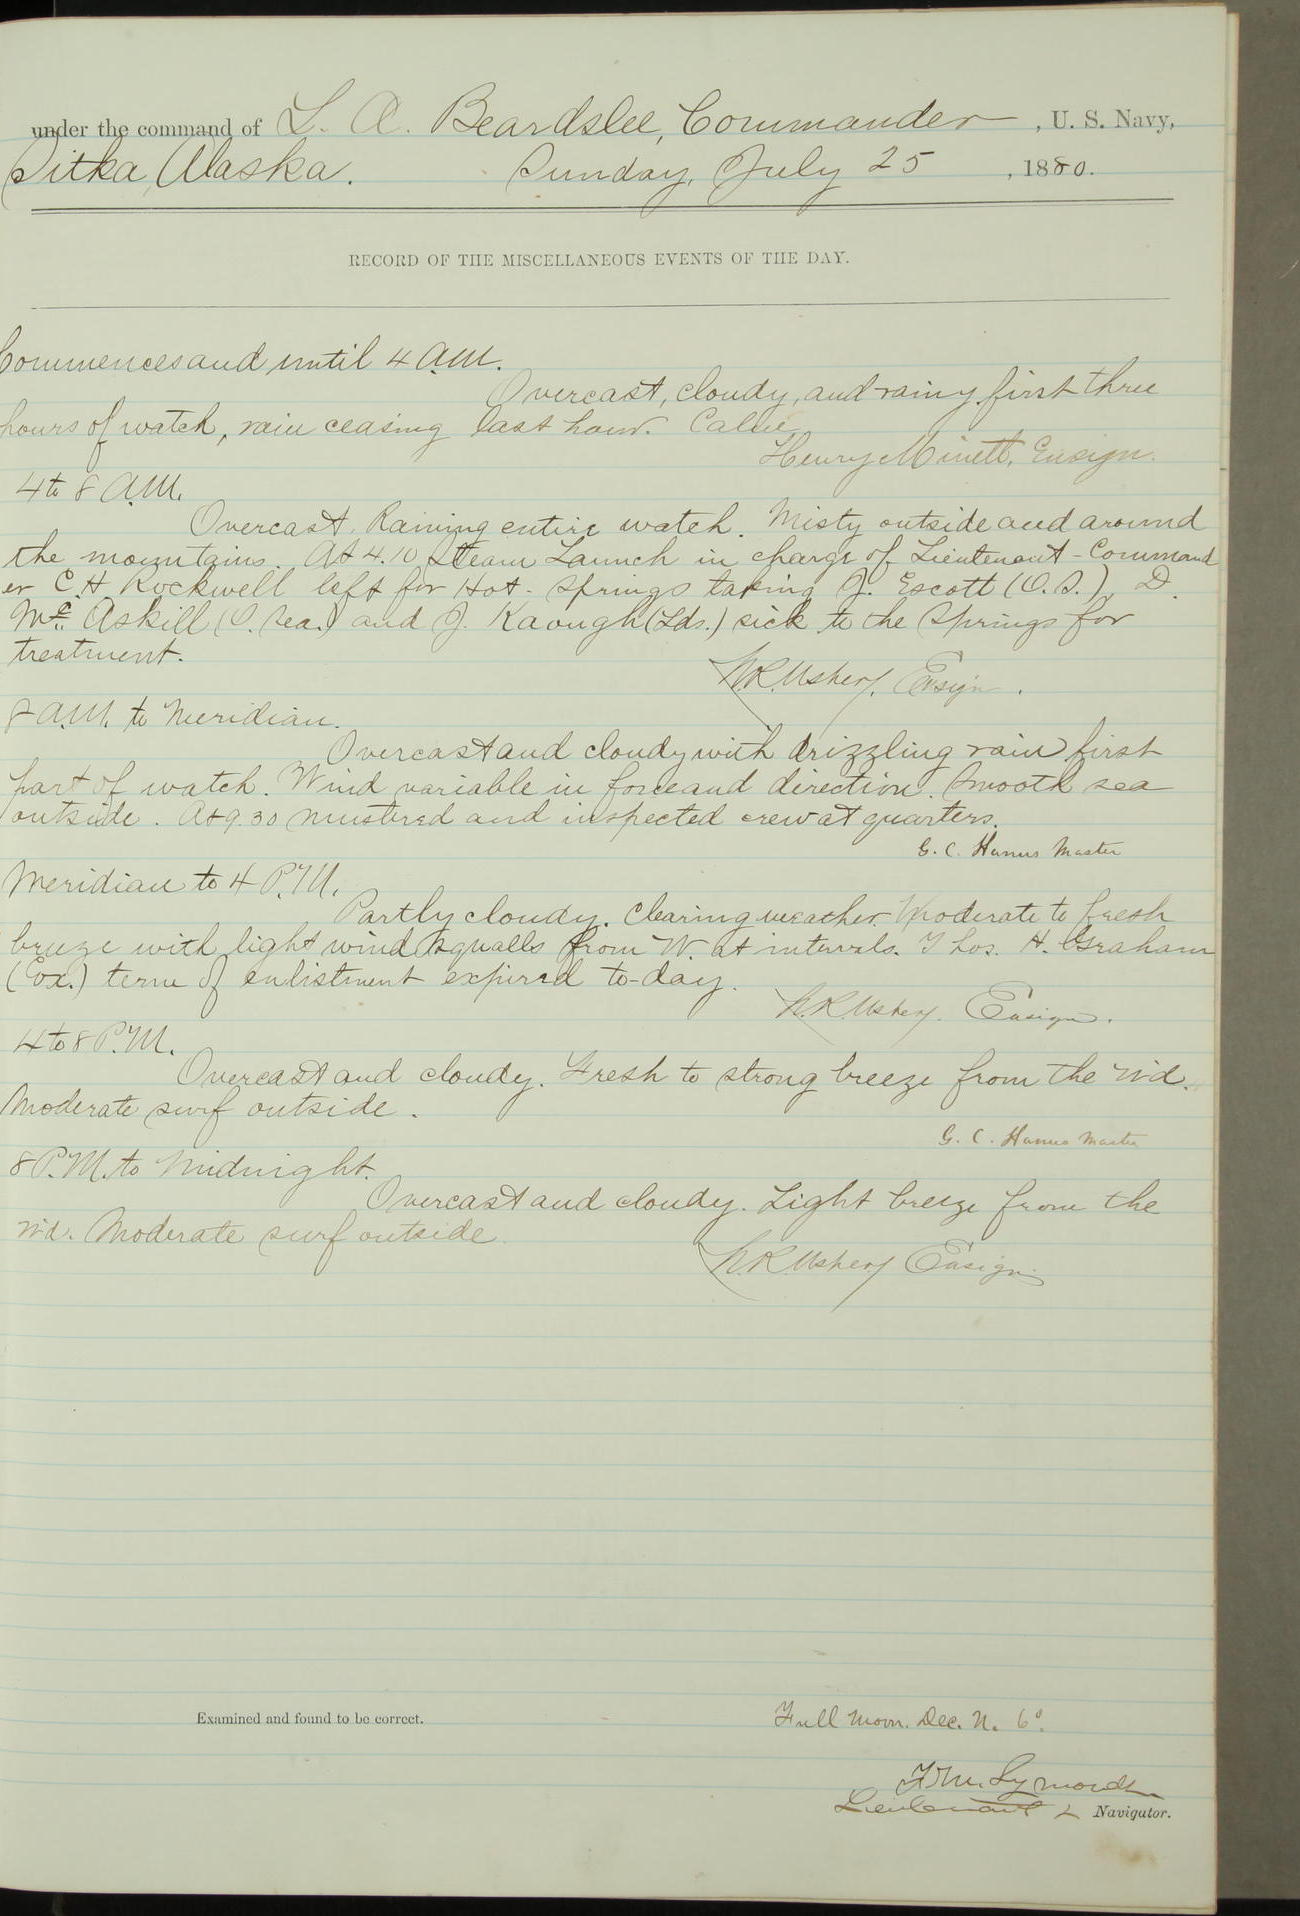 under the command of L. A. Beardslee, Commander, U. S. Navy,
Sitka, Alaska. Sunday, July 25, 1880.
RECORD OF THE MISCELLANEOUS EVENTS OF THE DAY.
Commences and until 4 A.M.
Overcast, cloudy, and rainy first three
hours of watch, rain ceasing last hour. Calm
Henry Minett, Ensign.
4 to 8 A.M.
Overcast. Raining entire watch. Misty outside and around
the mountains. At 4.10 Steam Launch in charge of Lieutenant-Command
er C. H. Rockwell left for Hot-Springs taking J. Escott (O.S.), D.
Mc. Askill (O. Sea.) and J. Kaough (Lds.) sick to the Springs for
treatment.
N.R. Usher, Ensign.
8 A.M. to Meridian.
Overcast and cloudy with drizzling rain first
part of watch. Wind variable in force and direction. Smooth sea
outside. At 9.30 mustered and inspected crew at quarters.
G. C. Hanus Master
Meridian to 4 P.M.
Partly cloudy. Clearing weather. Moderate to fresh
breeze with light wind squalls from W. at intervals. Thos. H. Graham
(Cox.) term of enlistment expired to-day.
N.R. Usher, Ensign.
4 to 8 P.M.
Overcast and cloudy. Fresh to strong breeze from the W'd.
Moderate surf outside.
G. C. Hanus Master
8 P.M. to Midnight.
Overcast and cloudy. Light breeze from the
W'd. Moderate surf outside.
N.R. Usher, Ensign.
Examined and found to be correct.
Full Moon. Dec. N. 6°.
F. M. Symonds
Lieutenant & Navigator.